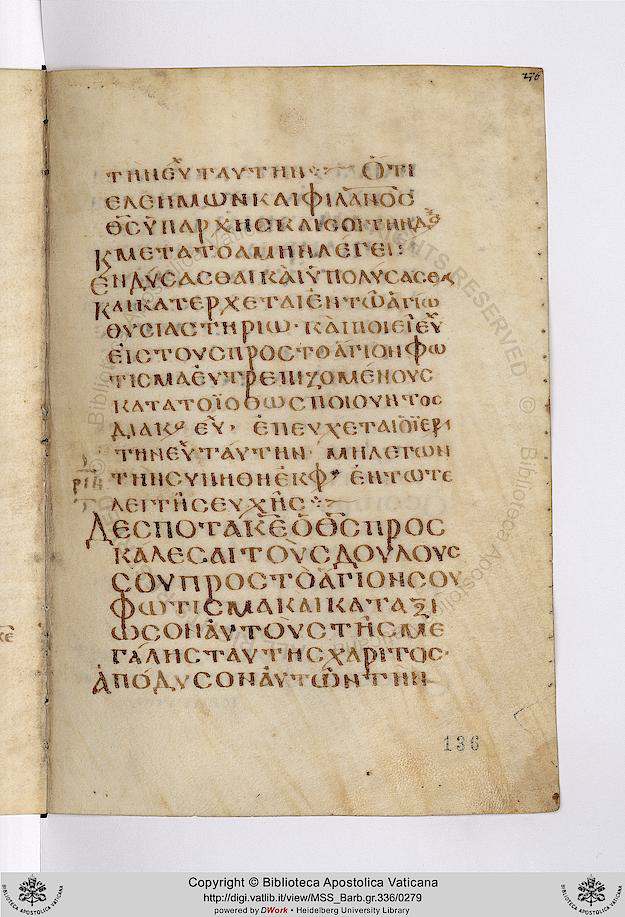 ΤΗΝ ΕΥ ΤΑΥΤΗΝ ΟΤΙ
ΕΛΕΗΜΩΝ ΚΑΙ ΦΙΛΑΝΟC
ΘC ΥΠΑΡΧΗC ΚΑΙ CΟΙ ΤΗΝ ΔΟ
Κ ΜΕΤΑ ΤΟ ΑΜΗΝ ΛΕΓΕΙ:
ΕΝΔΥCΑCΘΑΙ ΚΑΙ ΥΠΟΛΥCΑCΘΑΙ
ΚΑΙ ΚΑΤΕΡΧΕΤΑΙ ΕΝ ΤΩ ΑΓΙΩ
ΘΥCΙΑCΤΗΡΙΩ· ΚΑΙ ΠΟΙΕΙ ΕΥ
ΕΙC ΤΟΥC ΠΡΟC ΤΟ ΑΓΙΟΝ ΦΩ
ΤΙCΜΑ ΕΥΤΡΕΠΙΖΟΜΕΝΟΥC
ΚΑΤΑ ΤΟ ΪΟΘΩC ΠΟΙΟΥΝΤΟC
ΔΙΑΚΟ ΕΥ· ΕΠΕΥΧΕΤΑΙ Ο ΪΕΡΙ
ΤΗΝ ΕΥ ΤΑΥΤΗΝ· ΜΗ ΛΕΓΩΝ
ΤΗΝ CΥΝΗΘΗ ΕΚΦ ΕΝ ΤΩ ΤΕ
ΛΕΙ ΤΗC ΕΥΧΗC
ΔΕCΠΟΤΑ ΚΕ Ο ΘC ΠΡΟC
ΚΑΛΕCΑΙ ΤΟΥC ΔΟΥΛΟΥC
CΟΥ ΠΡΟC ΤΟ ΑΓΙΟΝ CΟΥ
ΦΩΤΙCΜΑ ΚΑΙ ΚΑΤΑΞΙ
ΩCΟΝ ΑΥΤΟΥC ΤΗC ΜΕ
ΓΑΛΗC ΤΑΥΤΗC ΧΑΡΙΤΟC·
ΑΠΟΔΥCΟΝ ΑΥΤΩΝ ΤΗΝ
136
Copyright © Biblioteca Apostolica Vaticana
http://digi.vatlib.it/view/MSS_Barb.gr.336/0279
powered by DWork • Heidelberg University Library